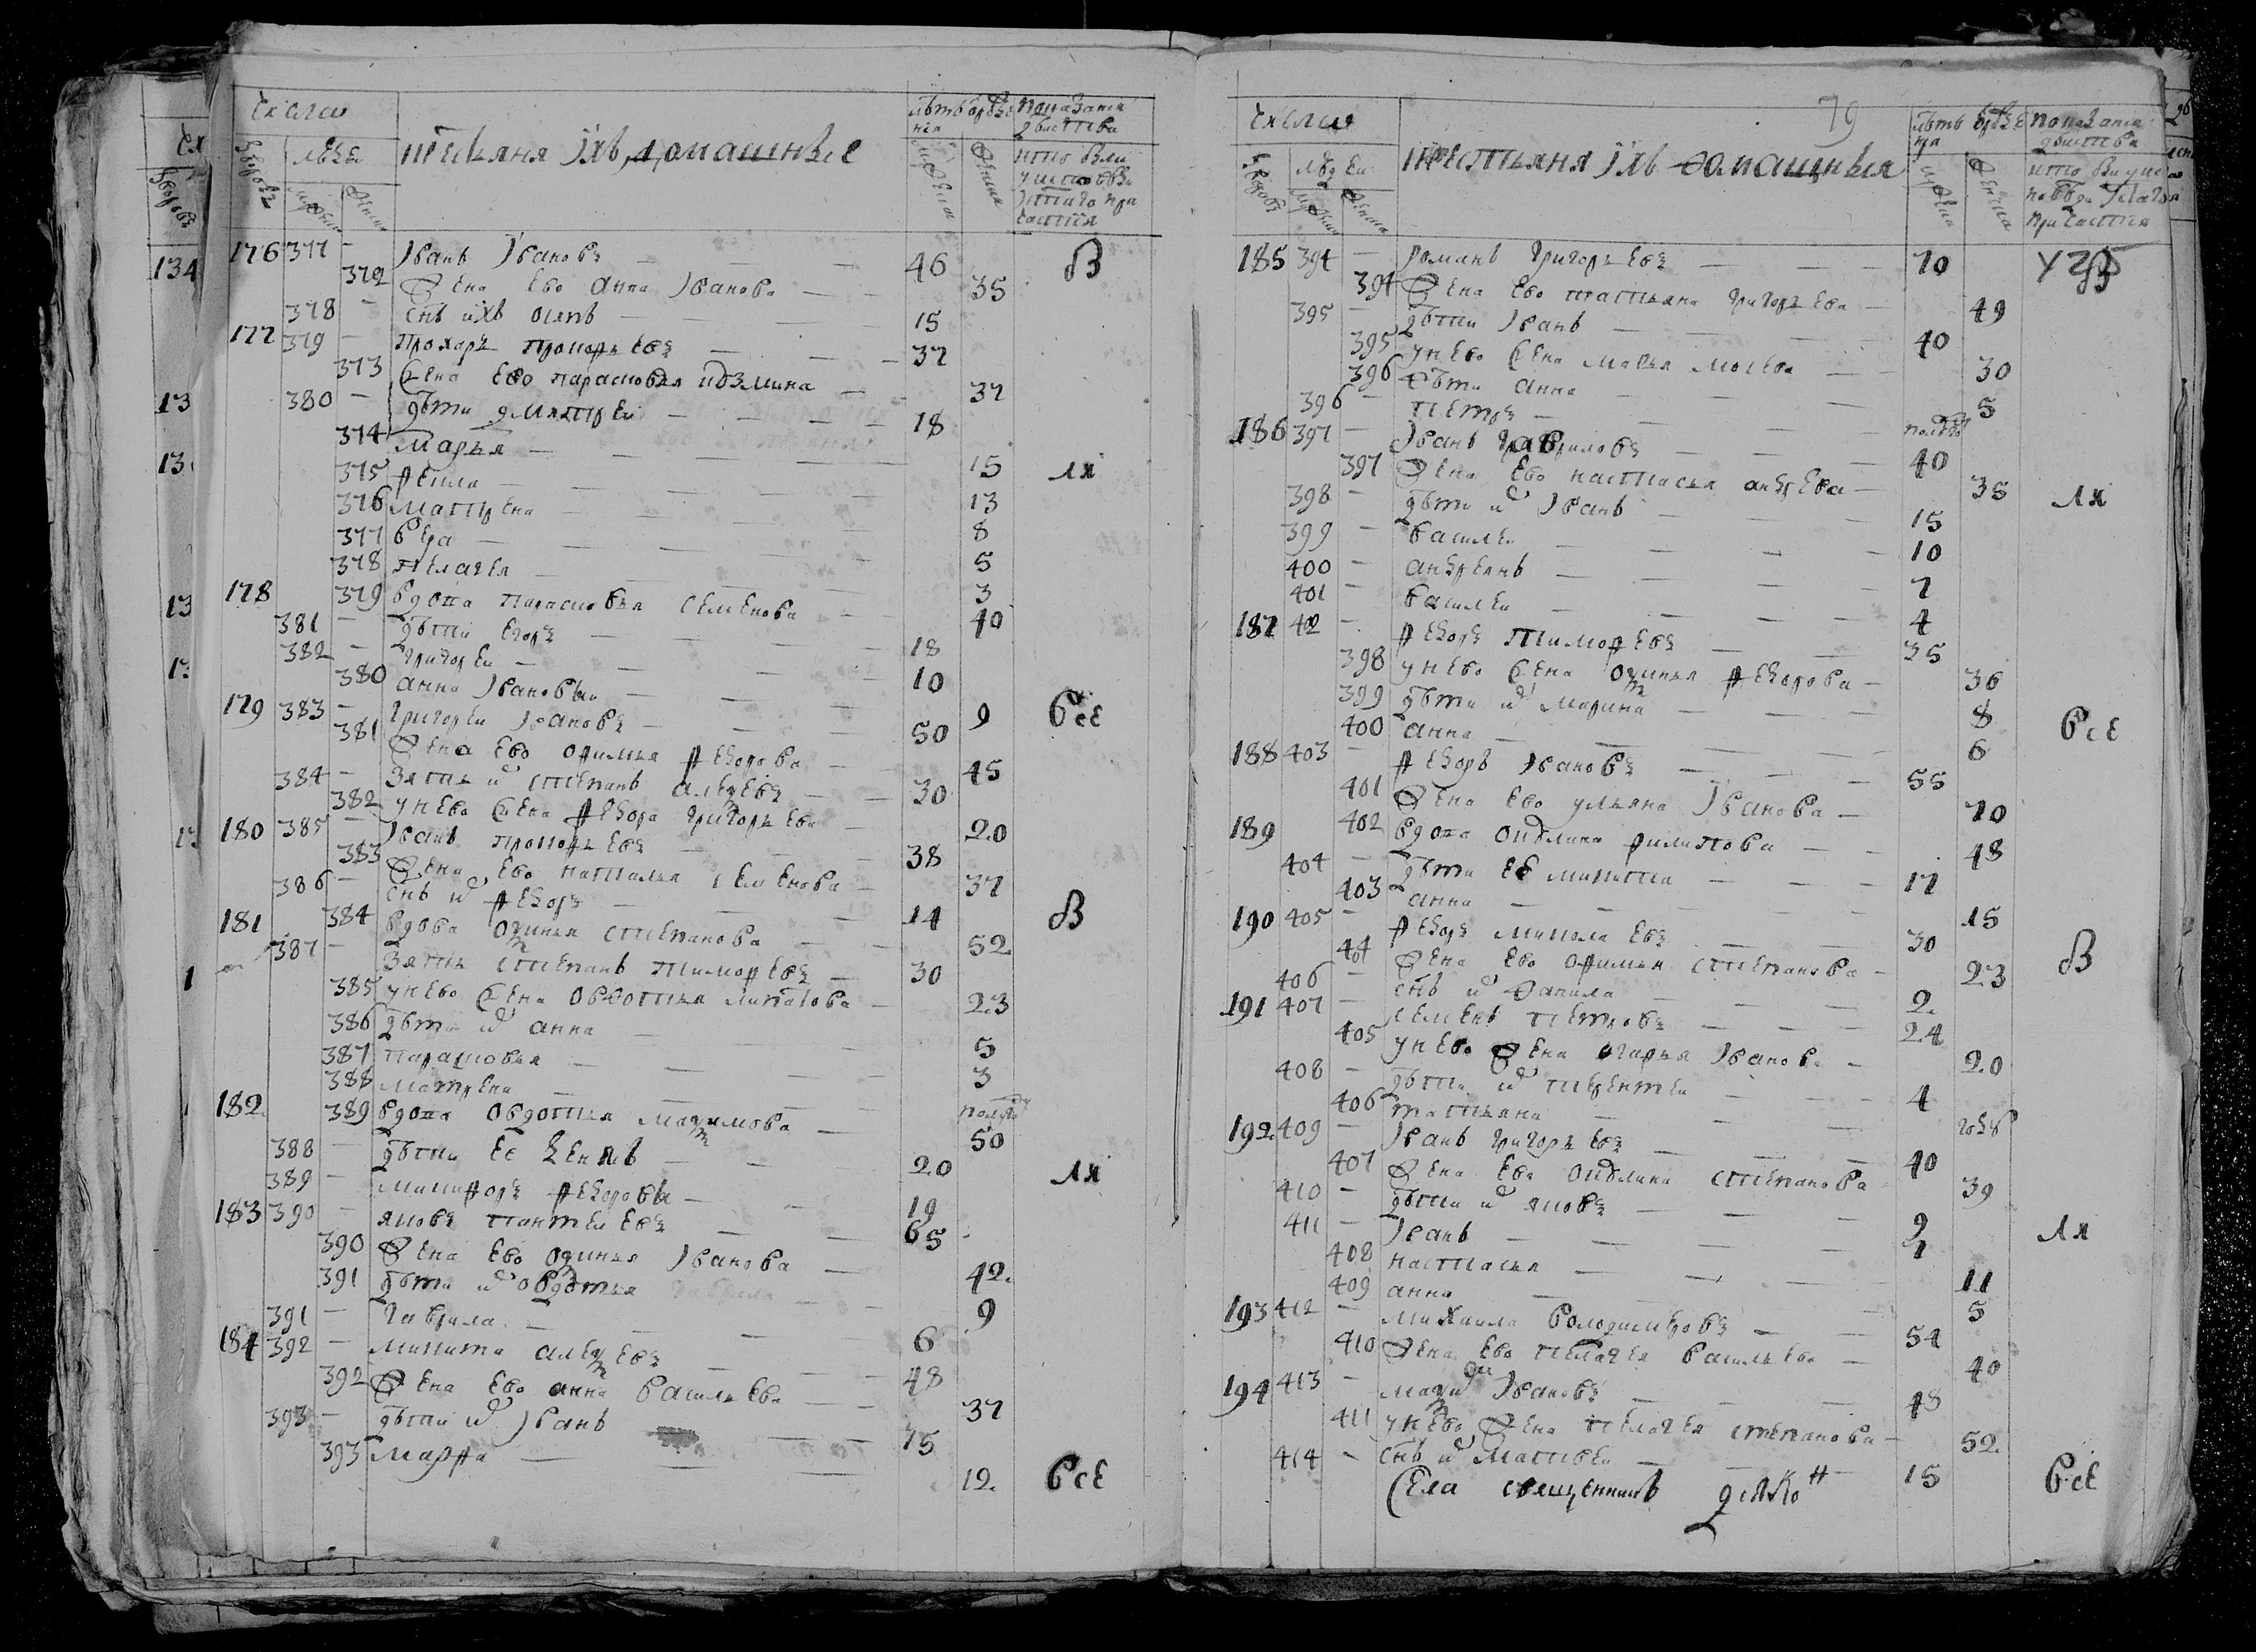 числа
дворовъ
людей
мужеска
женска
крестьяня ихъ домашние
лѣтъ
показаниа
176 377 – Иванъ Ивановъ – 46 В
372 Жена ево анна Иванова – 35
378 – снъ ихъ осипъ – 15
177 379 – Прохоръ Прокоръевъ – 37
373 Жена ево парасковья кѵзмина – 37
380 – дѣти дмитреи – 18
374 Марья – 15 ля
375 Фекла – 13
376 Матрена – 8
377 вера – 5
378 Пелагея – 3
178 379 вдова Парасковья Семенова – 40
381 – дѣти Егоръ – 18
382 – Григореи – 10
380 анна Ивановы – 9 все
179 383 – Григореи Ивановъ – 50
381 Жена ево офимья Федорова – 45
384 – Зять их степанъ алеѯѣевъ – 30
382 у нево жена Федора Григорьева – 20
180 385 – Иванъ Прокоѳьевъ – 38
383 Жена ево наталья семенова – 37
386 – снъ их Федоръ – 14 В
181 384 вдова оѯинья степанова – 52
387 – Зять степанъ Тимофеевъ – 30
385 у нево жена овдотья липатова – 23
386 дѣти их анна – 5
387 парасковья – 3
388 матрена – полгода
182 389 вдова овдотья Маѯимова – 50
388 – дѣти ее – 20 ля
389 – Никифоръ Федоровы – 19
183 390 – яковъ Пантелеевъ – 65
390 Жена ево оѯинья Иванова – 42
391 дѣти их овдотья – 9
391 – Гаврила – 6
184 392 – Никита алеѯеевъ – 48
392 Жена ево анна васильева – 37
393 – дѣти их Иванъ – 15
393 Марфа – 12 все
79
числа
дворовъ
людеи
мужеска
женска
крестьяня ихъ домашныя
лѣтъ
показаниа
185 394 – романъ Григорьевъ – 70 В
394 Жена ево татьяна григорьева – 49
395 – дѣти Иванъ – 40
395 у нево жена марья – 30
396 дѣти анна – 5
396 – петръ – полгода
186 397 – Иванъ Гавриловъ – 40
397 Жена ево настасья андрева – 35 ля
398 – дѣти их Иванъ – 15
399 – василеи – 10
400 – андреянъ – 7
401 – василеи – 4
187 402 – Федоръ Тимофеевъ – 35
398 у нево жена оѯинья Федорова – 36
399 дѣти их Марина – 8
400 анна – 6 все
188 403 – Федоръ Ивановъ – 55
401 Жена ево ульяна Иванова – 70
189 402 вдова окѵлина филипова – 48
404 – дѣти ее микита – 17
403 анна – 15
190 405 – Федоръ миколаевъ – 30 В
404 Жена ево офимья степанова – 23
406 – снъ их данила – 2
191 407 – семенъ петровъ – 24
405 у нево жена Иванова – 20
408 – дѣти их – 4
406 татьяна – годъ
192 409 – Иванъ Григорьевъ – 40
407 Жена ево окѵлина степанова – 39
410 – дѣти их яковъ – 9 ля
411 – Иванъ – 7
408 настасья – 11
409 анна – 5
193 412 – михаила володимеровъ – 54
410 Жена ево пелагея васильева – 40
194 413 – маѯимъ Ивановъ – 48
411 у нево жена пелагея степанова – 52
414 – снъ их матвеи – 15 все
Села священникъ